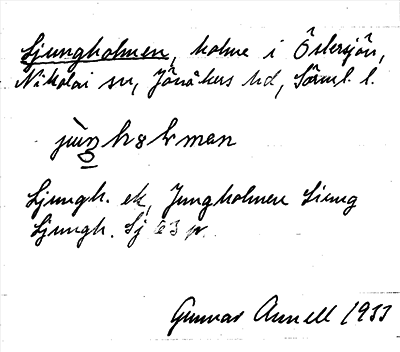 Ljungholmen, holme i Östersjön,
Nikolai sn, Jönåkers hd, Sörml. l.
Ljungh. ek, Jungholmen
Ljungh. Sj
Gunnar Annell 1933